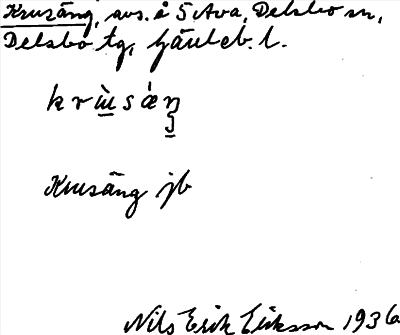 Krusäng, avs. å 5 Ava, Delsbo sn,
Delsbo tg, Gävleb. l.
krùsáŋ
Krusäng jb
Nils Erik Eriksson 1936